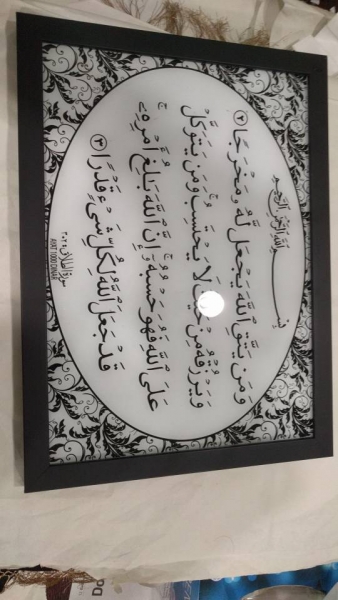 بِسْمِ اللَّهِ الرَّحْمَٰنِ الرَّحِيمِ
وَمَن يَتَّقِ ٱللَّهَ يَجْعَل لَّهُۥ مَخْرَجًا ٢
وَيَرْزُقْهُ مِنْ حَيْثُ لَا يَحْتَسِبُ ۚ وَمَن يَتَوَكَّلْ
عَلَى ٱللَّهِ فَهُوَ حَسْبُهُۥٓ ۚ إِنَّ ٱللَّهَ بَٰلِغُ أَمْرِهِۦ ۚ
قَدْ جَعَلَ ٱللَّهُ لِكُلِّ شَىْءٍ قَدْرًا ٣
Do